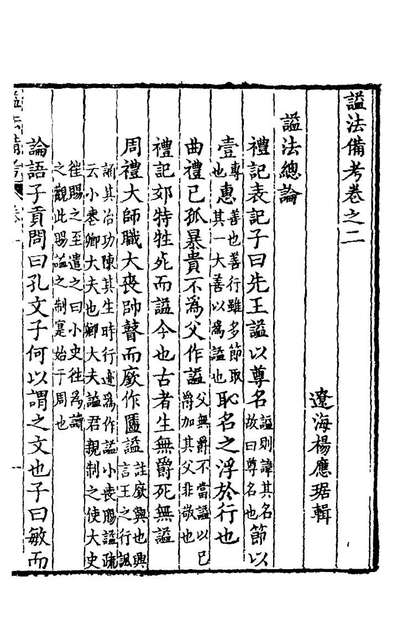 諡法備考卷之二
遼海楊應琚輯
諡法總論
禮記表記子曰先王諡以尊名諡則諱其名故曰尊名也節以
壹惠專善也善行雖多節取其一大善以為諡也恥名之浮於行也
曲禮已孤暴貴不為父作諡父無爵不當諡以己爵加其父非敬也
禮記郊特牲死而諡今也古者生無爵死無諡
周禮大師職大喪帥瞽而廞作匶諡註廞興也興言王之行諷
誦其治功陳其生時行迹為作諡小喪賜諡疏云小喪卿大夫也卿大夫諡君親制之使大史
往賜之至遣之日小史往為讀之觀此賜諡之制寔始于周也
論語子貢問曰孔文子何以謂之文也子曰敏而